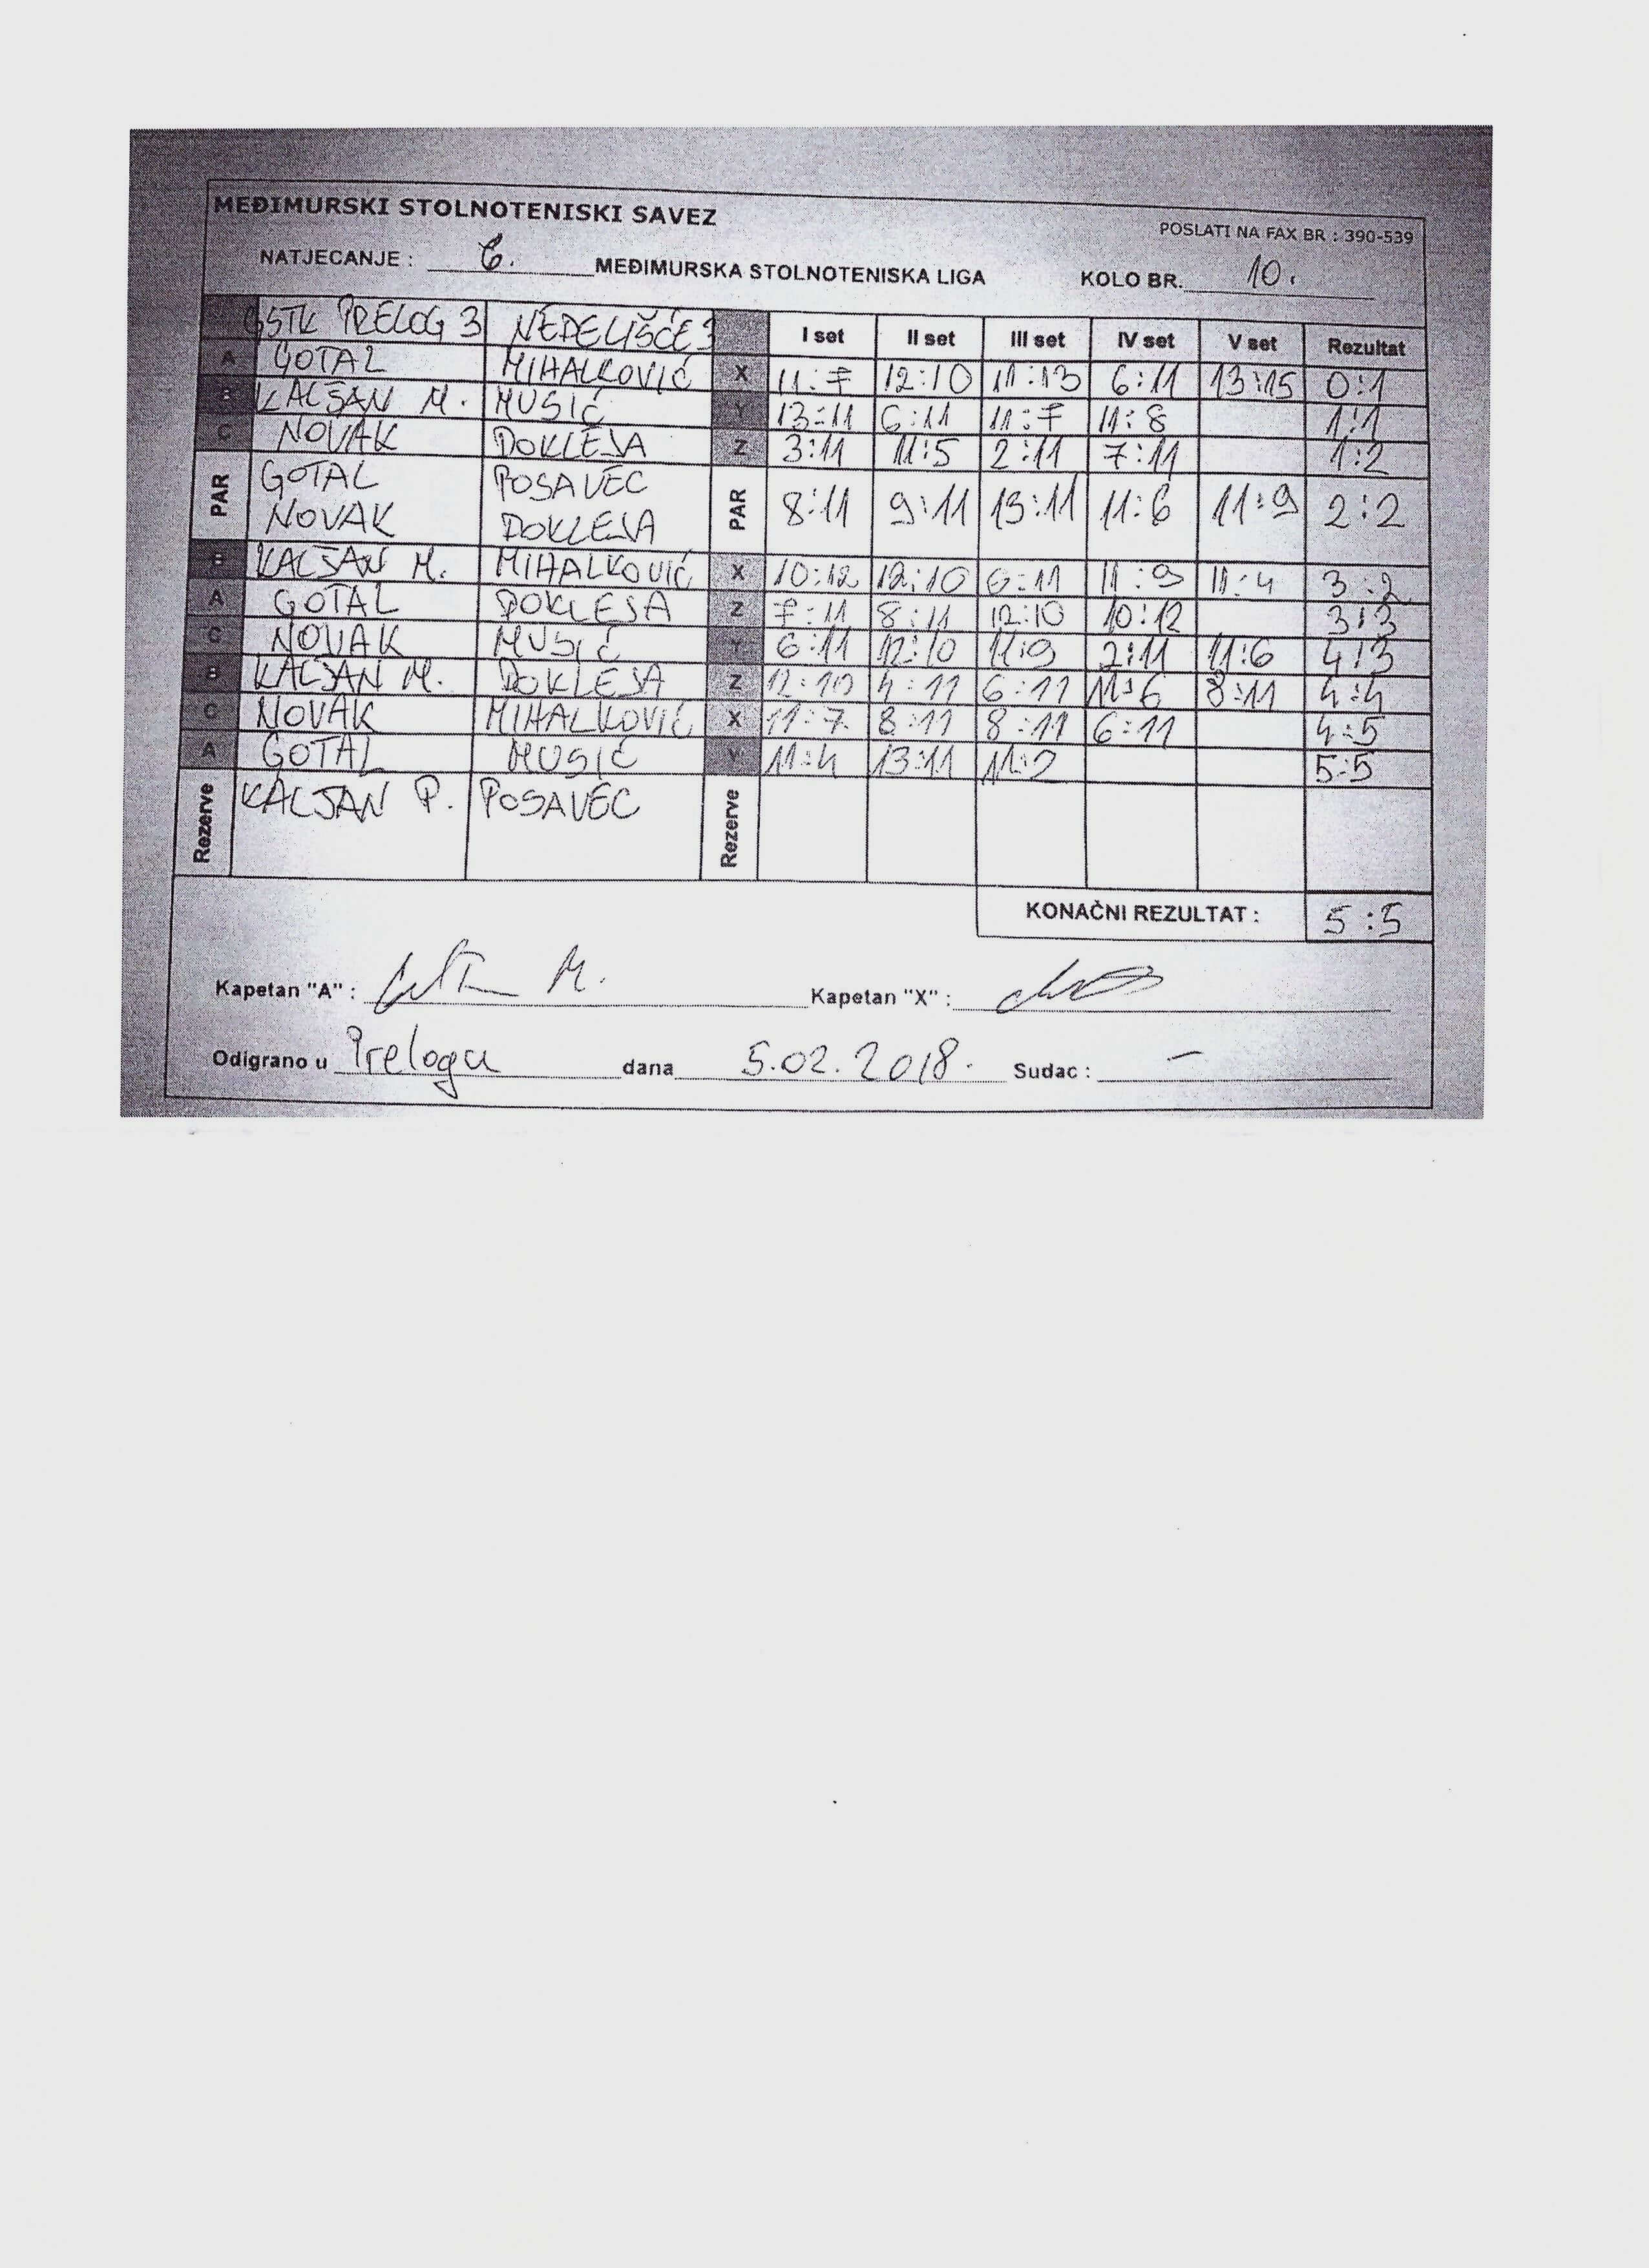 MEĐIMURSKI STOLNOTENISKI SAVEZ
POSLATI NA FAX BR : 390-539
NATJECANJE : 6. MEĐIMURSKA STOLNOTENISKA LIGA KOLO BR. 10.
GSTK PRELOG 3 NEDELIŠĆE 3 I set II set III set IV set V set Rezultat
A GOTAL MIHALKOVIĆ X 11:7 12:10 11:13 6:11 13:15 0:1
B KALŠAN M. MUSIĆ Y 13:11 6:11 11:7 11:8 1:1
C NOVAK DOKLEJA Z 3:11 11:5 2:11 7:11 1:2
PAR GOTAL POSAVEC PAR 8:11 9:11 13:11 11:6 11:9 2:2
NOVAK DOKLEJA
B KALŠAN M. MIHALKOVIĆ X 10:12 12:10 6:11 11:9 11:4 3:2
A GOTAL DOKLEJA Z 7:11 8:11 12:10 10:12 3:3
C NOVAK MUSIĆ Y 6:11 12:10 11:9 2:11 11:6 4:3
B KALŠAN M. DOKLEJA Z 12:10 4:11 6:11 11:6 8:11 4:4
C NOVAK MIHALKOVIĆ X 11:7 8:11 8:11 6:11 4:5
A GOTAL MUSIĆ Y 11:4 13:11 11:2 5:5
Rezerve KALŠAN P. POSAVEC Rezerve
KONAČNI REZULTAT : 5:5
Kapetan "A" : M. Kapetan "X" :
Odigrano u Prelogu dana 5.02.2018. Sudac : –